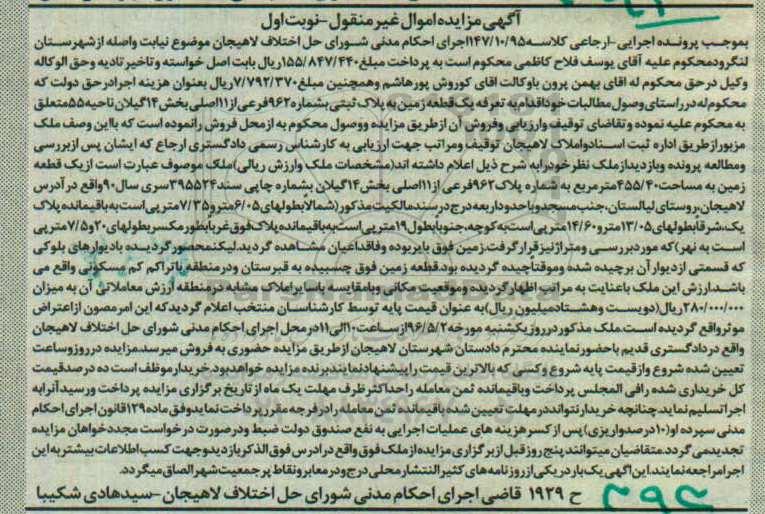 آگهی مزایده اموال غیر منقول - نوبت اول
بموجب پرونده اجرایی-ارجاعی کلاسه ۱۴۷/۱۰/۹۵اجرای احکام مدنی شورای حل اختلاف لاهیجان موضوع نیابت واصله ازشهرستان
لنگرودمحکوم علیه آقای یوسف فلاح کاظمی محکوم است به پرداخت مبلغ۱۵۵/۸۴۷/۴۴۰ریال بابت اصل خواسته وتاخیر تادیه وحق الوکاله
وکیل درحق محکوم له اقای بهمن پرون باوکالت اقای کوروش پورهاشم وهمچنین مبلغ۷/۷۹۲/۳۷۰ریال بعنوان هزینه اجرادرحق دولت که
محکوم له درراستای وصول مطالبات خوداقدام به تعرفه یک قطعه زمین به پلاک ثبتی بشماره۹۶۲فرعی از۱۱اصلی بخش۱۴گیلان ناحیه۵۵متعلق
به محکوم علیه نموده وتقاضای توقیف وارزیابی وفروش آن ازطریق مزایده ووصول محکوم به ازمحل فروش رانموده است که بااین وصف ملک
مزبورازطریق اداره ثبت اسنادواملاک لاهیجان توقیف ومراتب جهت ارزیابی به کارشناس رسمی دادگستری ارجاع که ایشان پس ازبررسی
ومطالعه پرونده وبازدیدازملک نظرخودرابه شرح ذیل اعلام داشته اند(مشخصات ملک وارزش ریالی)ملک موصوف عبارت است ازیک قطعه
زمین به مساحت۴۵۵/۴۰مترمربع به شماره پلاک۹۶۲فرعی از۱۱اصلی بخش۱۴گیلان بشماره چاپی سند۳۹۵۵۲۴سری سال۹۰واقع درآدرس
لاهیجان،روستای لیالستان،جنب مسجدوباحدوداربعه درج درسندمالکیت مذکور(شمالابطولهای۶/۰۵مترو۷/۳۵متر پی است به باقیمانده پلاک
یک،شرقابطولهای۱۳/۰۵مترو۱۴/۶۰متر پی است به کوچه،جنوبابطول۱۹متر پی است به باقیمانده پلاک فوق غربابطورمکسربطولهای۲۰و۷/۵متر پی
است به نهر)که موردبررسی ومتراژنیزقرارگرفت.زمین فوق بایربوده وفاقداعیان مشاهده گردید.لیکنمحصورگردیده بادیوارهای بلوکی
که قسمتی ازدیوارآن برچیده شده وموقتاچیده گردیده بود.قطعه زمین فوق چسبیده به قبرستان ودرمنطقه باتراکم کم مسکونی واقع می
باشد.ارزش این ملک باعنایت به مراتب اظهارگردیده وموقعیت مکانی وبامقایسه باسایراملاک مشابه درمنطقه ارزش معاملاتی آن به میزان
۲۸۰/۰۰۰/۰۰۰ریال(دویست وهشتادمیلیون ریال)به عنوان قیمت پایه توسط کارشناسان منتخب اعلام گردیدکه این امرمصون ازاعتراض
موثرواقع گردیده است.ملک مذکوردرروزیکشنبه مورخه۹۶/۵/۲ازساعت۱۰الی۱۱درمحل اجرای احکام مدنی شورای حل اختلاف لاهیجان
واقع دردادگستری قدیم باحضورنماینده محترم دادستان شهرستان لاهیجان ازطریق مزایده حضوری به فروش میرسد.مزایده درروزوساعت
تعیین شده شروع وازقیمت پایه شروع وکسی که بالاترین قیمت راپیشنهادنمایندبرنده مزایده خواهدبود.خریدارموظف است ده درصدقیمت
کل خریداری شده رافی المجلس پرداخت وباقیمانده ثمن معامله راحداکثرظرف مهلت یک ماه ازتاریخ برگزاری مزایده پرداخت ورسیدآنرابه
اجراتسلیم نماید.چنانچه خریدارنتوانددرمهلت تعیین شده باقیمانده ثمن معامله رادرفرجه مقررپرداخت نمایدوفق ماده۱۲۹قانون اجرای احکام
مدنی سپرده او(۱۰درصدواریزی)پس ازکسرهزینه های عملیات اجرایی به نفع صندوق دولت ضبط ودرصورت درخواست مجددخواهان مزایده
تجدیدمی گردد.متقاضیان میتوانندپنج روزقبل ازبرگزاری مزایده ازملک فوق واقع درادرس فوق الذکربازدیدوجهت کسب اطلاعات بیشتربه این
اجرامراجعه نمایند.این اگهی یک باردریکی ازروزنامه های کثیرالنتشارمحلی درج ودرمعابرونقاط پرجمعیت شهرالصاق میگردد.
ح ۱۹۲۹ قاضی اجرای احکام مدنی شورای حل اختلاف لاهیجان -سیدهادی شکیبا